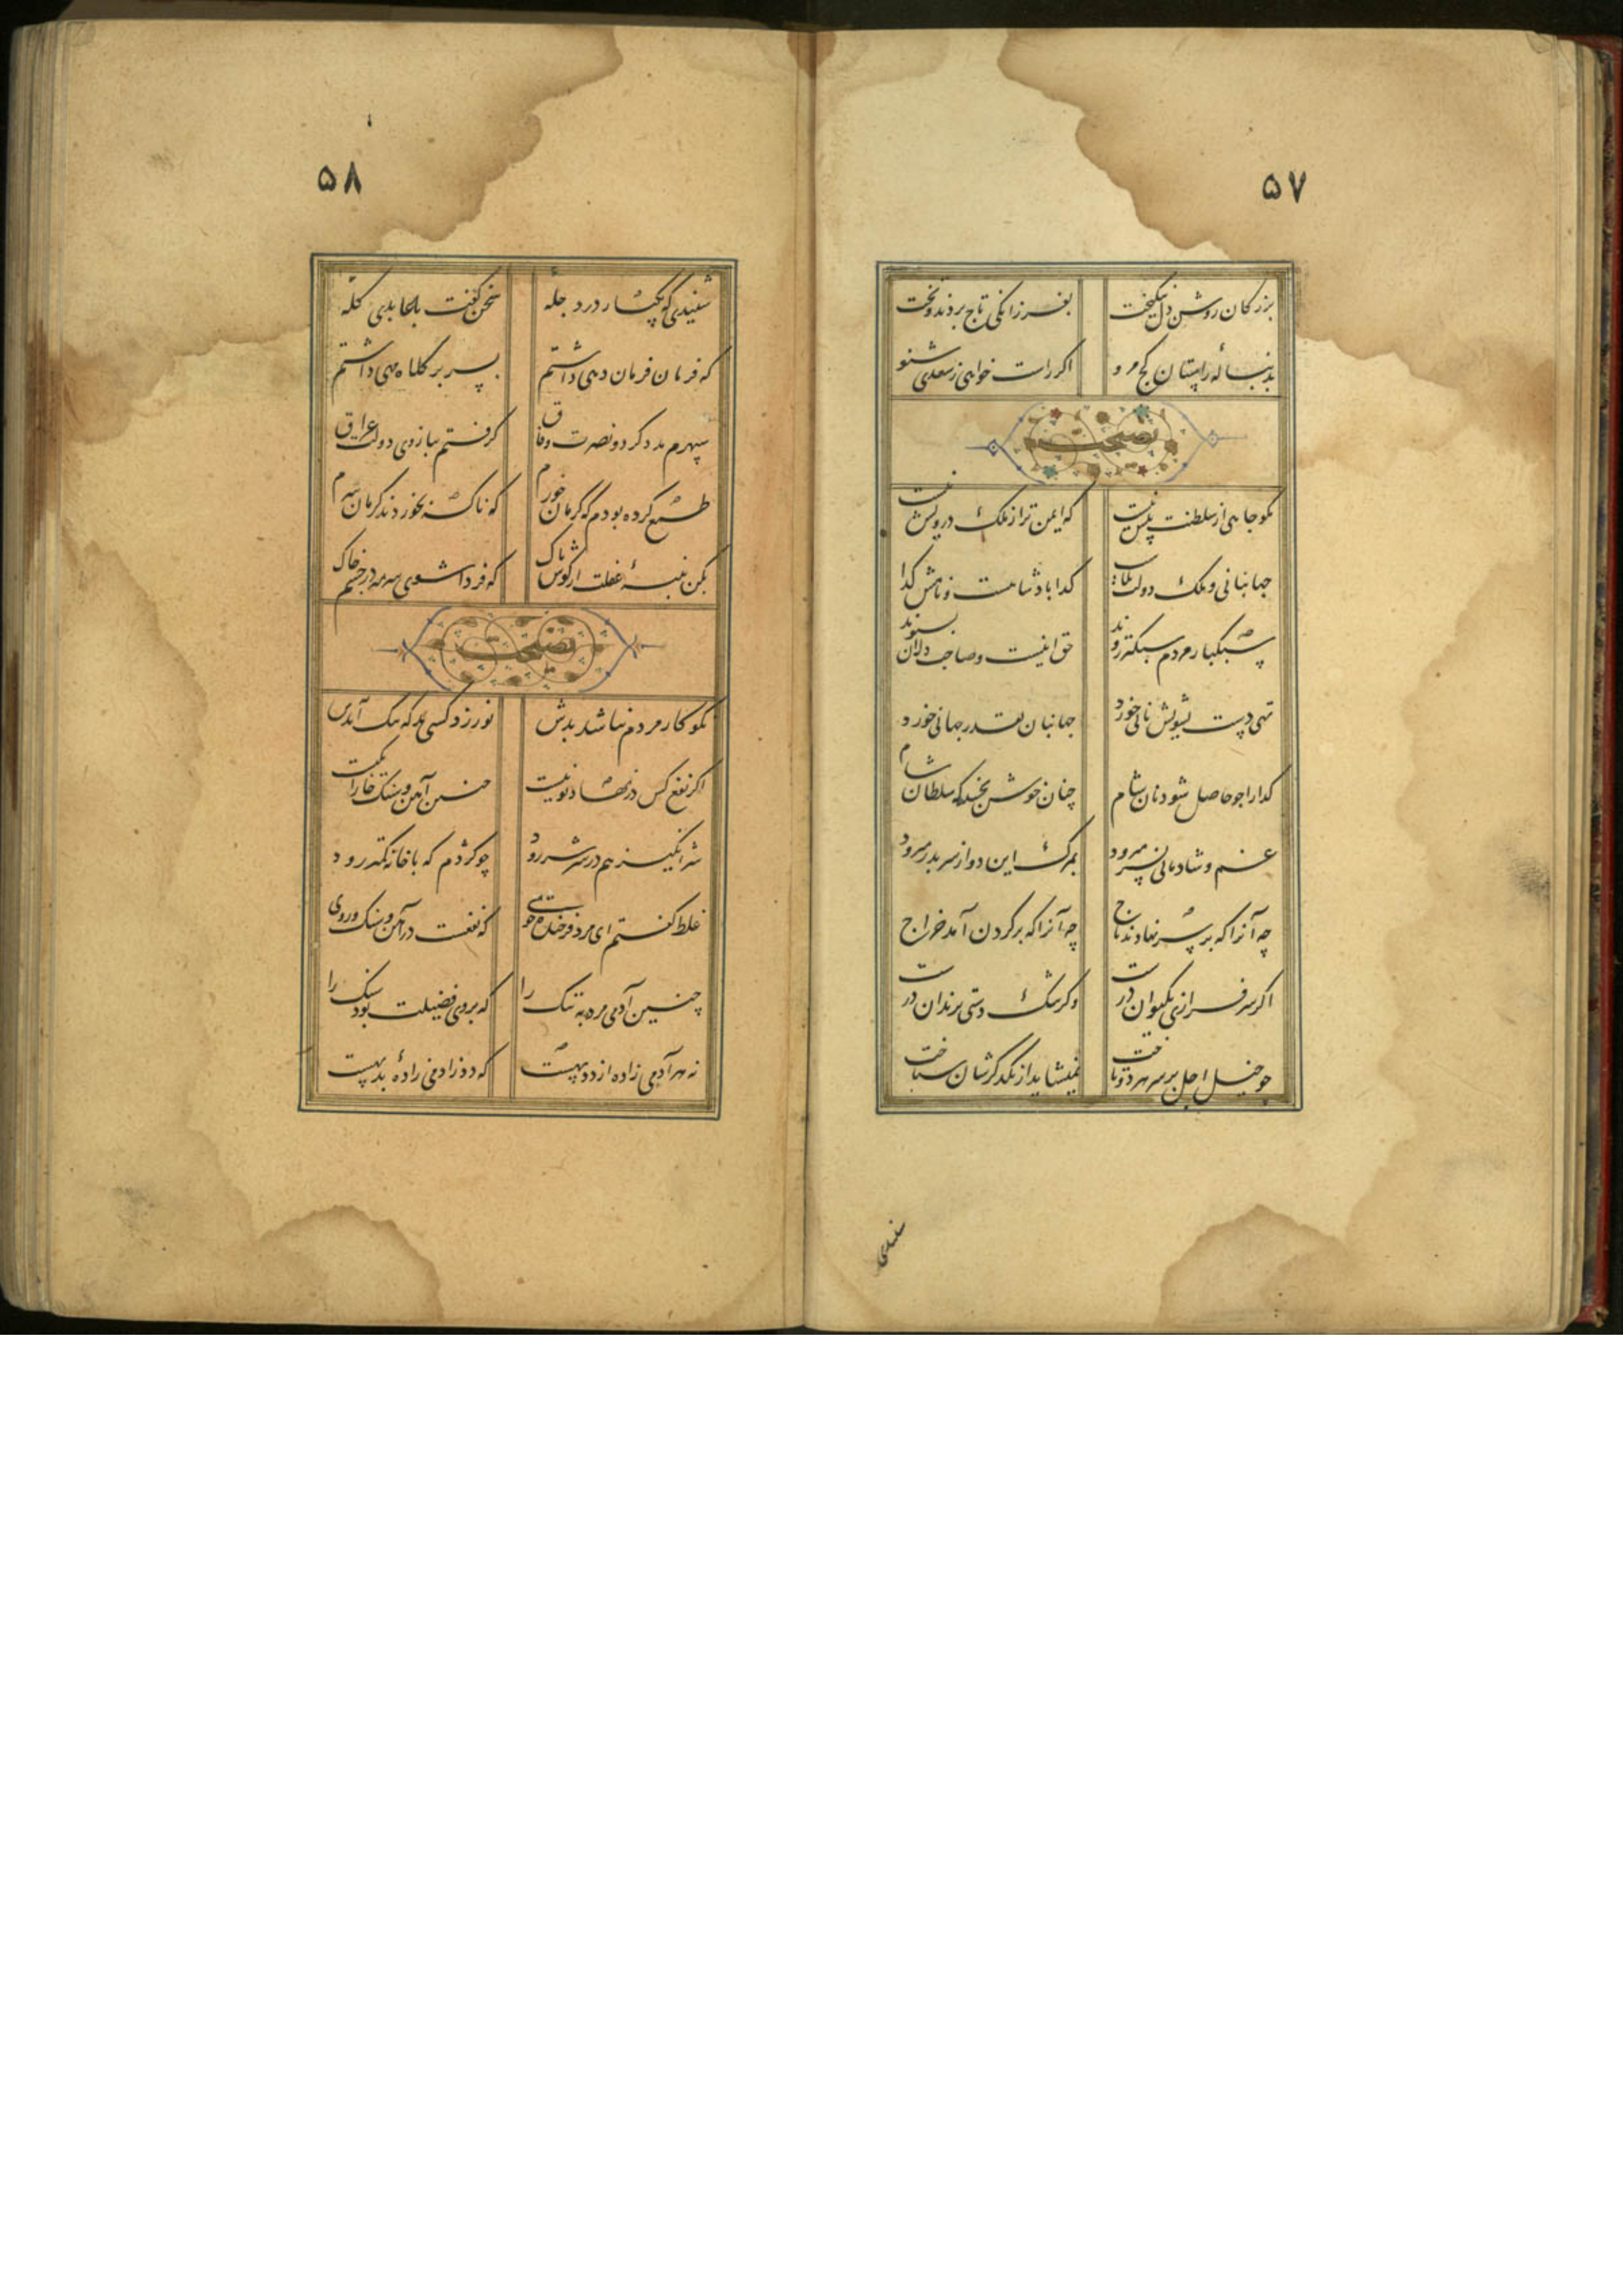 ۵۷
بزرکان روشن دل نیکبخت بفرزانکی تاج بردند و تخت
بدنبالهٔ راستان کج مرو اکر راست خواهی ز سعدی شنو
نصیحت
مکو جاهی از سلطنت بیش نیست که ایمن تر از ملک درویش نیست
جهانبانی و ملک دولت کدا بادشاهست و نامش کدا
سبکبار مردم سبکتر روند حق اینست و صاحب دلان بشنوند
تهی دست تشویش نانی خورد جهانبان بقدر جهانی خورد
کدا را جو حاصل شود نان شام چنان خوش بخسبد که سلطان شام
غم و شادمانی بسر میرود بمرک این دو از سر بدر میرود
چه آنرا که بر سر نهادند تاج چه آنرا که بر کردن آمد خراج
اکر سرفرازی بکیوان درست وکر تنک دستی بزندان درست
جو خیل اجل بر سر هر دو تاخت نمیشاید از یکدکرشان شناخت
شنیدی
۵۸
شنیدی که یکبار در دجلهٔ سخن کفت با عابدی کلهٔ
که فرمان فرمان دهی داشتم بسر بر کلاه مهی داشتم
سپهرم مدد کرد و نصرت وفاق کرفتم ببازوی دولت عراق
طمع کرده بودم که کرمان خورم که ناکه بخوردند کرمان سرم
بکن پنبهٔ غفلت از کوش پاک که فردا شوی سرمه در چشم خاک
نصیحت
نکوکار مردم نباشد بدش نورزد کسی بد که نیک آیدش
اکر نفع کس در نهاد تو نیست چنین آهن و سنک خارا یکیست
شرانکیز هم در سر شر رود جو کژدم که با خانه کمتر رود
غلط کفتم ای مرد فرخنده خوی که نفعست در آهن و سنک و روی
چنین آدمی مرده به ننک را که بر وی فضیلت بود سنک را
نه هر آدمی زاده از دد بهست که دد ز آدمی زادهٔ بد بهست